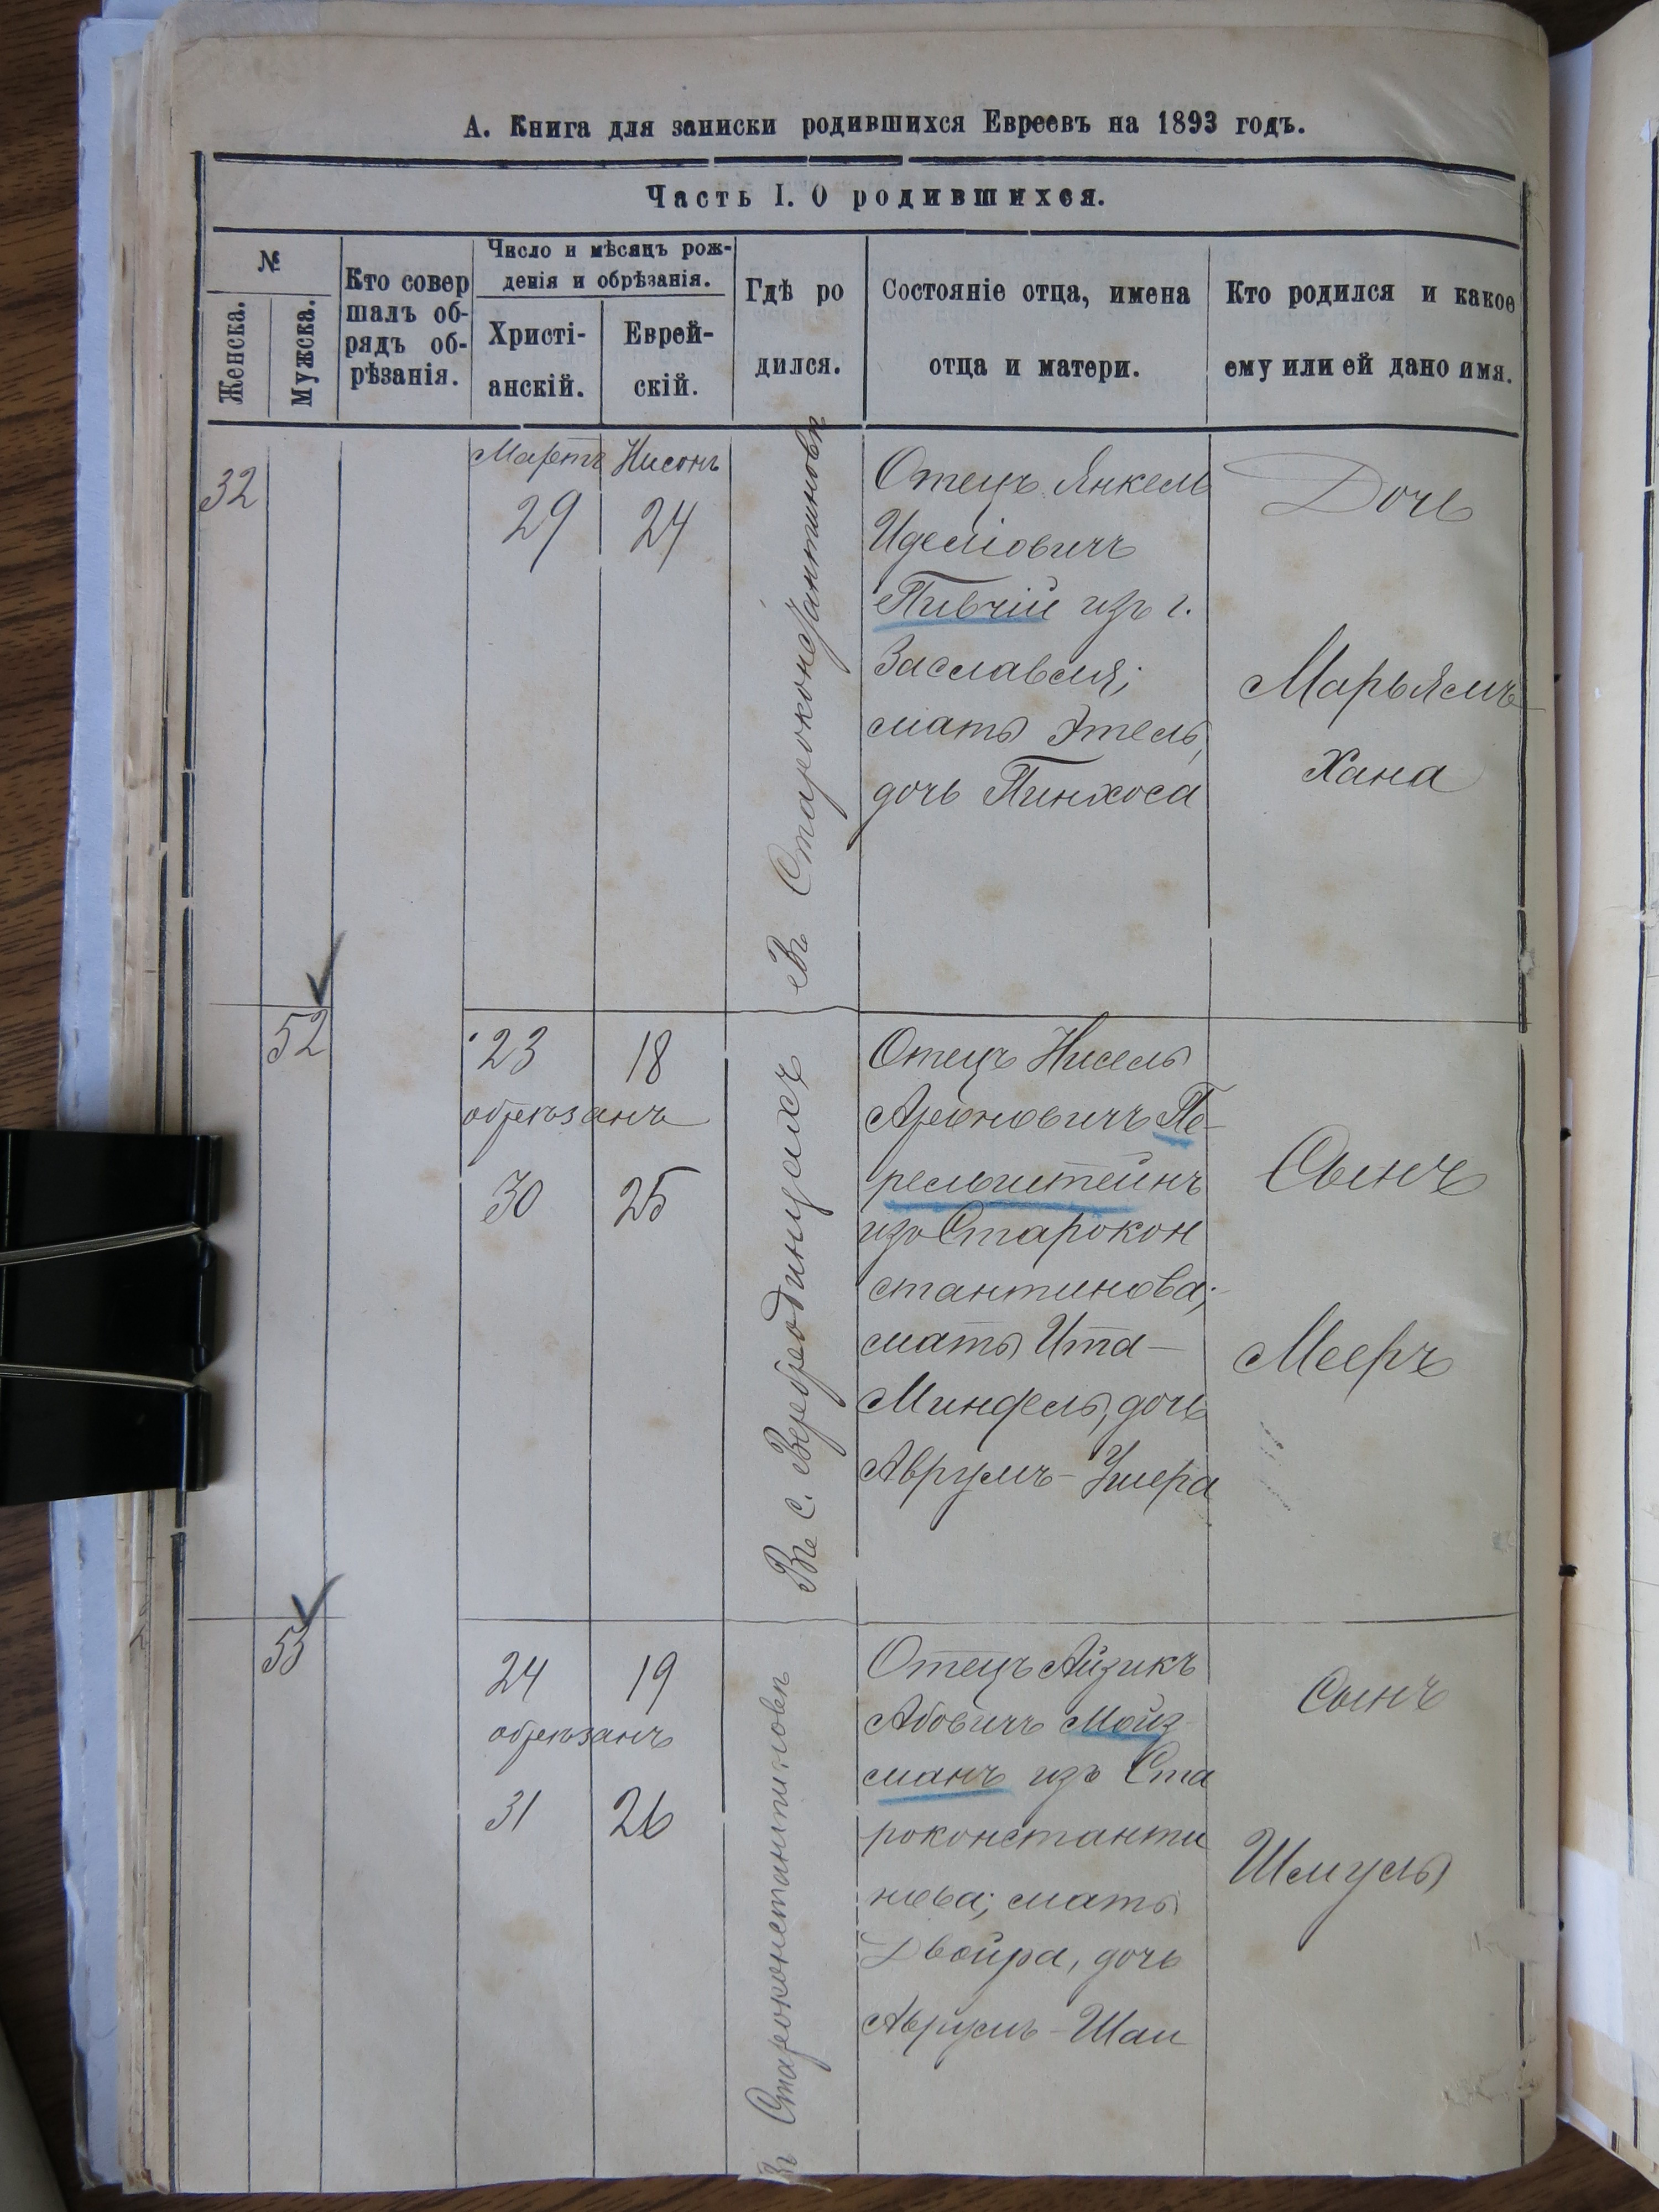 А. Книга для записки родившихся Евреевъ на 1893 годъ.
Часть I. О родившихся.
№
Женска.
Мужска.
Кто совер
шалъ об-
рядъ об-
рѣзанія.
Число и мѣсяцъ рож-
денія и обрѣзанія.
Христі-
анскій.
Еврей-
скій.
Гдѣ ро
дился.
Состояніе отца, имена
отца и матери.
Кто родился и какое
ему или ей дано имя.
32
Мартъ
29
Нисонъ
24
въ Староконстантиновѣ
Отецъ Янкель
Иделіовичъ
Пивчій изъ г.
Заславля;
мать Этель,
дочь Пинхоса
Дочь
Марьямъ
Хана
52
23
18
обрѣзанъ
30
25
Въ с. Вереб
Отецъ Нисель
Ароновичъ Пе-
рельштейнъ
изъ Старокон
стантинова;
мать Ита-
Миндель, дочь
Аврумъ-Ушера
Сынъ
Мееръ
53
24
19
обрѣзанъ
31
26
въ Староконстантиновѣ
Отецъ Айзикъ
Абовичъ Мойз-
манъ изъ Ста
роконстанти
нова; мать
Двойра, дочь
Аврумъ-Шаи
Сынъ
Шмуль